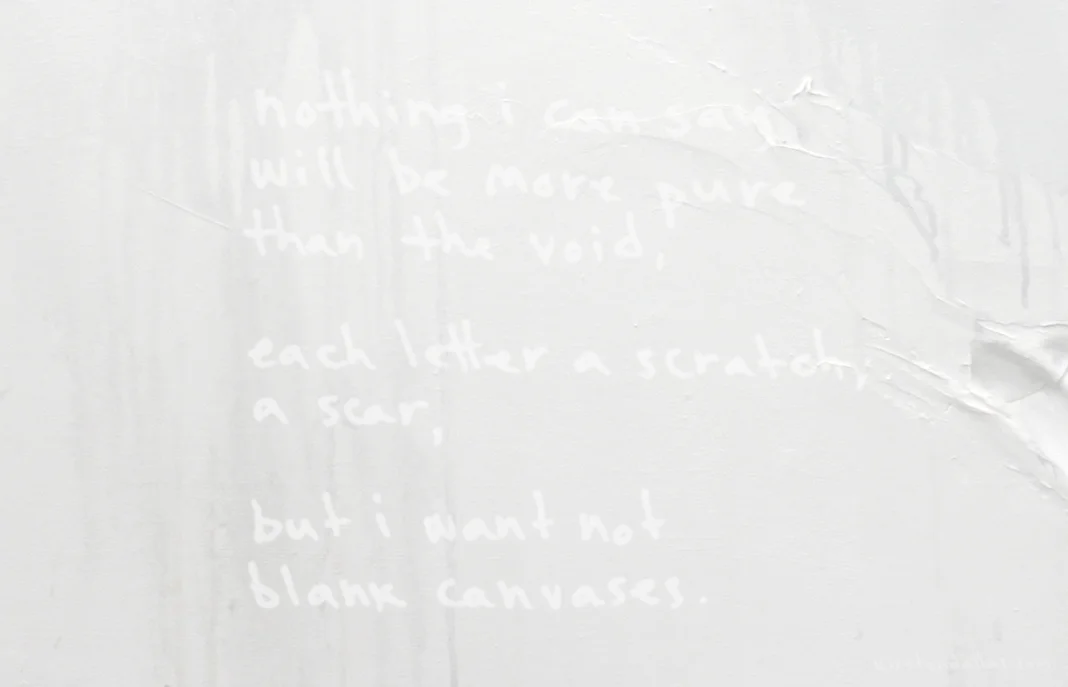 nothing i can say
will be more pure
than the void,
each letter a scratch,
a scar,
but i want not
blank canvases.